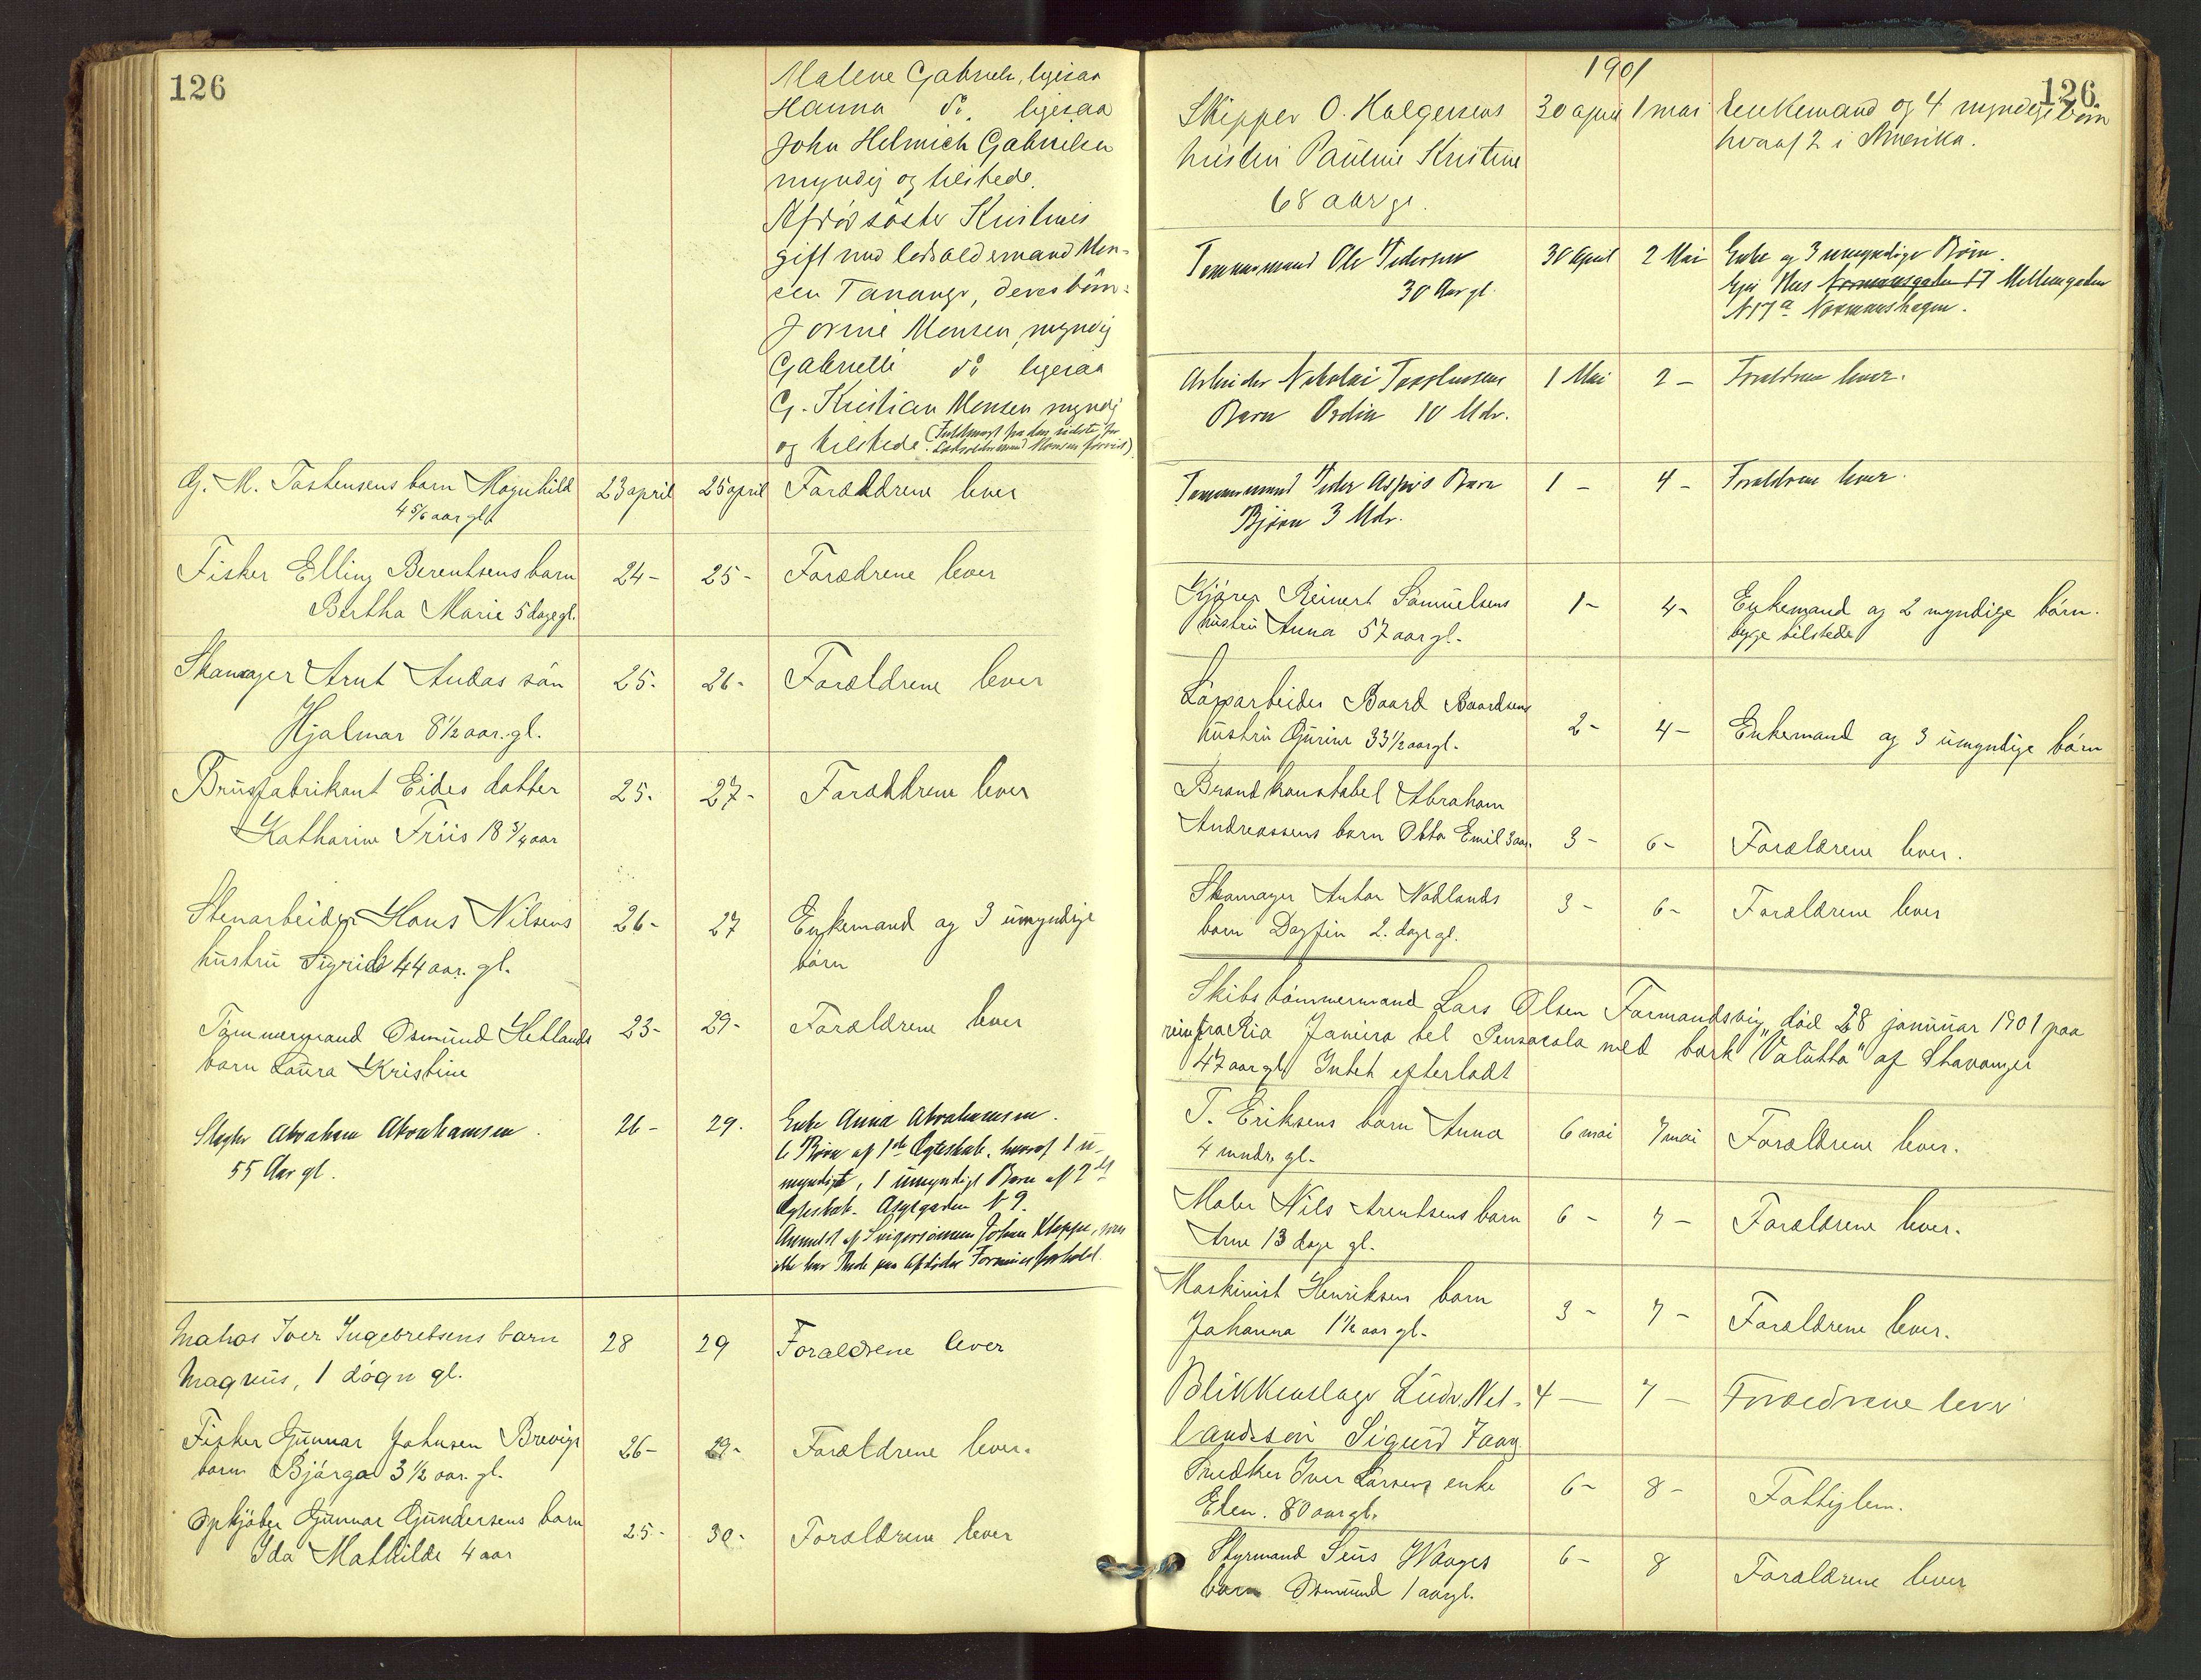 126
Malene Gabriels, ligesaa
Hanna do. ligesaa
John Helmich Gabrielsen
myndig og tilstede.
Afdøs søster Kristines
gift med lodsoldermand Mon-
sen Tananger, deres börn:
Jorine Monsen, myndig
Gabrielle do ligesaa
G. Kristian Monsen myndig
og tilstede. (Fuldmagt fra den sidste for
Lodsoldermand Monsen forevist)
G. M. Tastensens barn Magnhild 23 april 25 april Forældrene lever
4 5/6 aar gl
Fisker Elling Berentsens barn 24 - 25 - Forældrene lever
Bertha Marie 5 dage gl.
Skomager Arnt Audas sön 25. 26 - Forældrene lever
Hjalmar 8 1/2 aar. gl.
Brusfabrikant Eides datter 25. 27 - Forældrene lever
Katharine Friis 18 3/4 aar
Stenarbeider Hans Nilsens 26 - 27 Enkemand og 3 umyndige
hustru Sigrid 44 aar. gl. börn
Tömmermand Osmund Hetlands 23 - 29 - Forældrene lever
barn Laura Kristine
Slagter Abraham Abrahamsen. 26 - 29. Enke Anna Abrahamsen.
55 Aar gl. 6 Börn af 1ste Ægteskab, hvoraf 1 u-
myndigt, 1 umyndigt Barn af 2det
Ægteskab. Asylgaden No 9.
Anmeldt af Svigersønnen Johan Kleppe, som
ikke har Rede paa Afdødes Formuesforhold.
Matros Iver Ingebretsens barn 28 29 Forældrene lever
Magnus, 1 dögn gl.
Fisker Gunnar Johnsen Brevigs 26 - 29 - Forældrene lever.
barn Bjarga 3 1/2 aar. gl.
Opkjöber Gunnar Gundersens barn 25 - 30 - Forældrene lever
Ida Mathilde 4 aar
1901
126.
Skipper O. Halgersens 30 april 1 mai Enkemand og 4 myndige börn
hustru Pauline Kristine hvoraf 2 i Amerika.
68 aar gl.
Tømmermand Ole Pedersen 30 April 2 Mai Enke og 3 umyndige Børn.
30 Aar gl. Eget Hus Normansgaden 17 Mellemgaden
No 17a Normanshagen.
Arbeider Nikolai Torstensens 1 Mai 2 - Forældrene lever.
Barn Ordin 10 Mdr.
Tømmermand Peder Barn 1 - 4 - Forældrene lever.
Bjørn 3 Mdr.
Kjører Reinert Samuelsens 1 - 4 - Enkemand og 2 myndige börn.
hustru Anna 57 aar gl. begge tilstede
Lösarbeider Baard Baardsens 2 - 4 - Enkemand og 3 umyndige börn
hustru Gurine 33 1/2 aar gl.
Brandkonstabel Abraham
Andreassens barn Otto Emil 3 aar. 3 - 6 - Forældrene lever.
Skomager Anton Nodlands 3 - 6 - Forældrene lever
barn Dagfin 2. dage gl.
Skibstömmermand Lars Olsen Formandsvig, död 28 januar 1901 paa
reise fra Rio Janeiro til Pensacola med bark "Valutta" af Stavanger
47 aar gl Intet efterladt
T. Eriksens barn Anna 6 mai 7 mai Forældrene lever.
4 mndr. gl.
Maler Nils Arentsens barn 6 - 7 - Forældrene lever.
Arne 13 dage gl.
Maskinist Henriksens barn 3 - 7 - Forældrene lever.
Johanna 1 1/2 aar gl.
Blikkenslager Ludv. Net- 4 - 7 - Forældrene lever
landssön Sigurd 7 aar
Snedker Iver Larsens enke 6 - 8 - Fattiglem.
Elen. 80 aar gl.
Styrmand Waages 6 - 8 Forældrene lever
barn Osmund 1 aar gl.